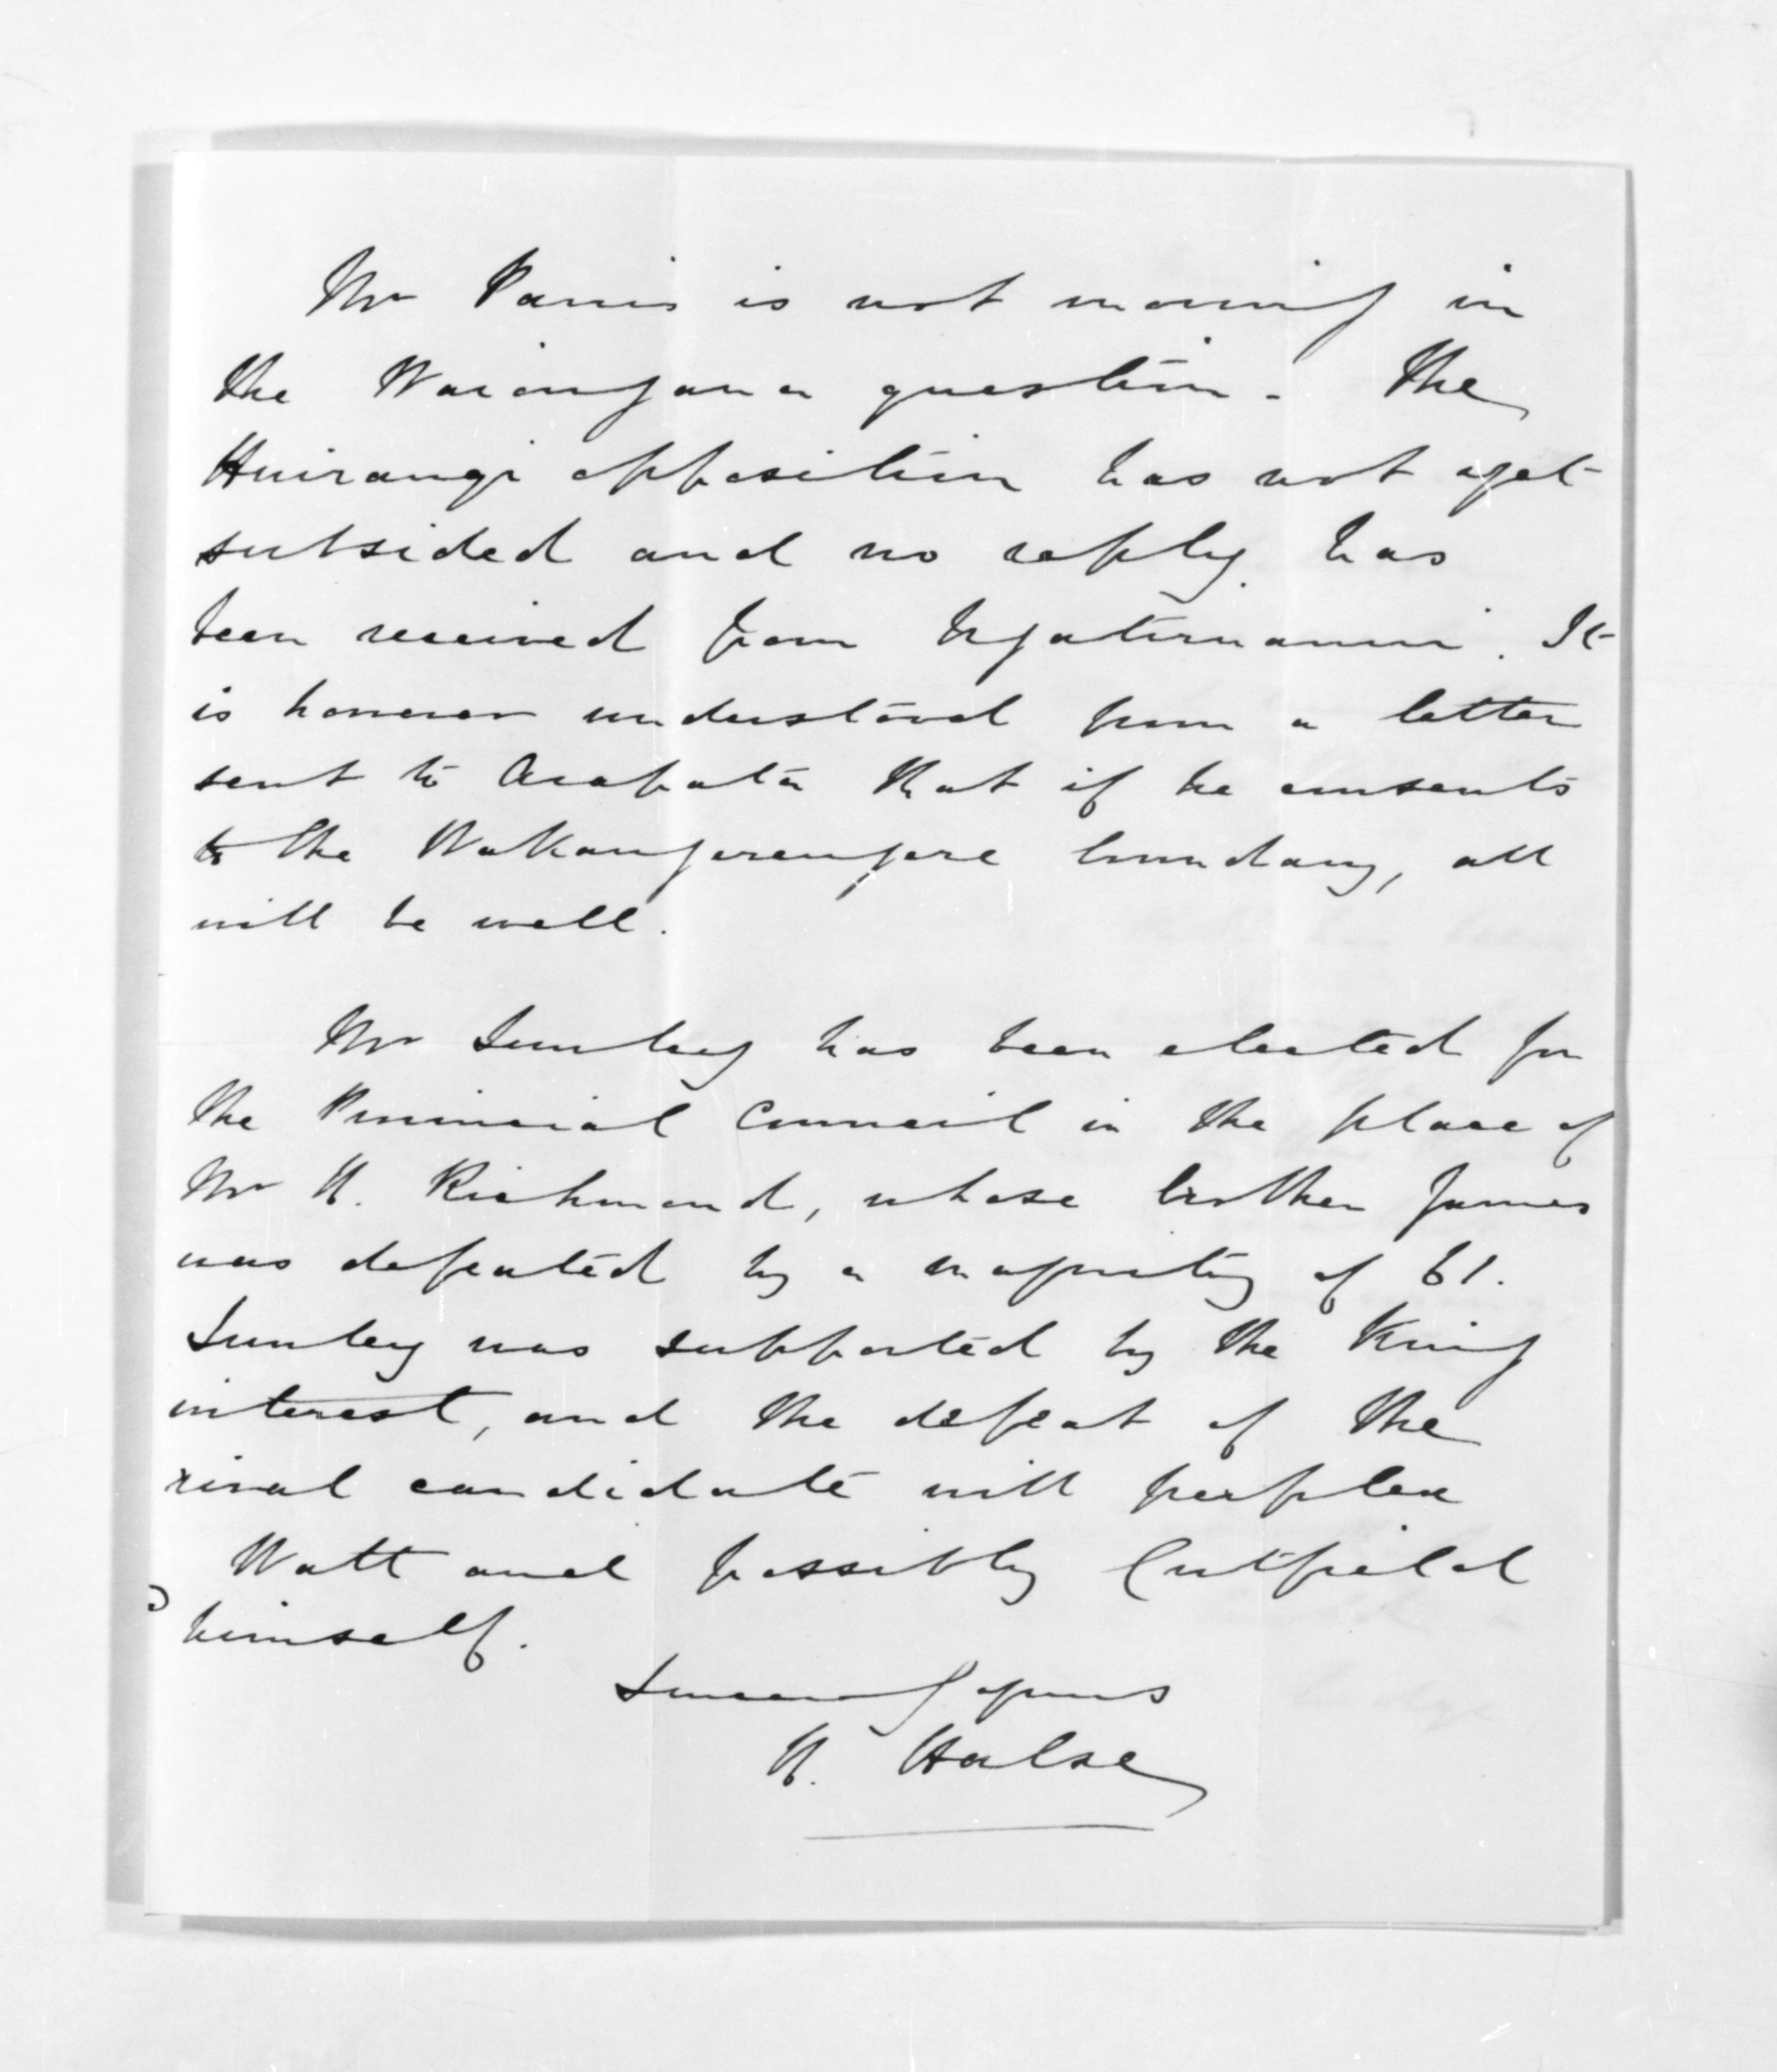 Mr Parris is not moving in
the Waiongana question. The
Huirangi opposition has not yet
subsided and no reply has
been received from Ngatiruanui. It
is however understood from a letter
sent to Arapata that if he consents
to the Wakangerengere boundary, all
will be well.
Mr Sunley has been elected for
the Provincial Council in the place of
Mr H. Richmond, whose brother James
was defeated by a majority of 61.
Sunley was supported by the King
interest, and the defeat of the
rival candidate will perplex
Watt and possibly Cutfield
himself.
Sincerely yours
H. Halse